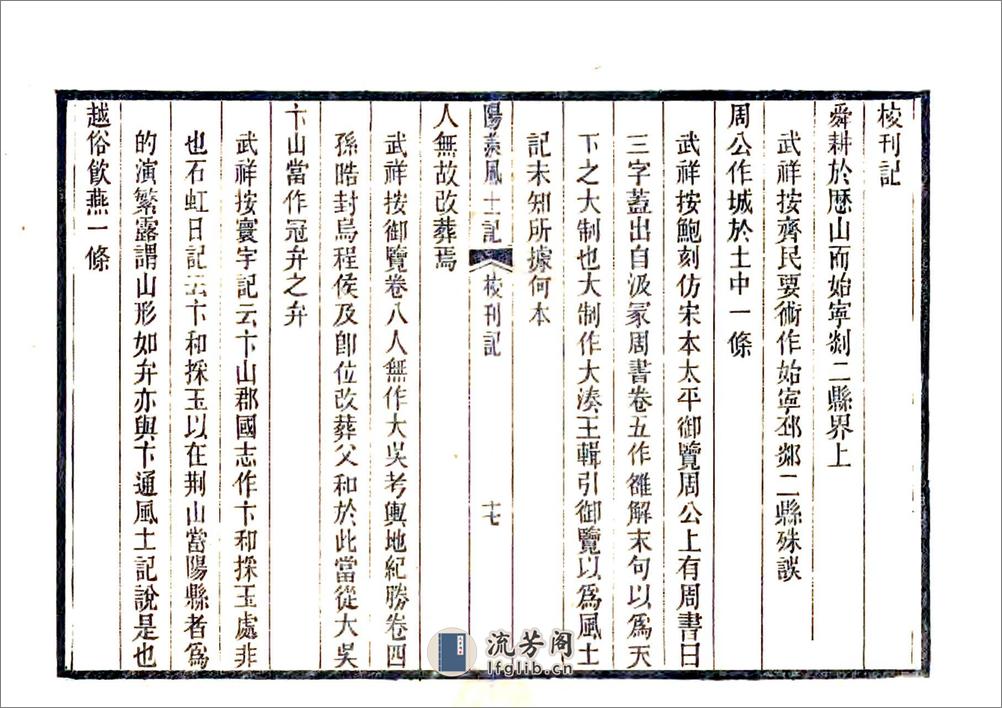 校刊記
舜耕於歷山而始寧剡二縣界上
武祥按齊民要術作始寧邳鄒二縣殊誤
周公作城於土中一條
武祥按鮑刻仿宋本太平御覽周公上有周書曰
三字蓋出自汲冢周書卷五作雒解末句以爲天
下之大制也大制作大湊王輯引御覽以爲風土
記未知所據何本
陽羨風土記 校刊記 十七
人無故改葬焉
武祥按御覽卷八人無作大吳考輿地紀勝卷四
孫晧封烏程侯及卽位改葬父和於此當從大吳
卞山當作冠弁之弁
武祥按寰宇記云卞山郡國志作卞和採玉處非
也石虹日記云卞和採玉以在荆山當陽縣者爲
的演繁露謂山形如弁亦與卞通風土記說是也
越俗飲燕一條
流芳阁
lfglib.cn